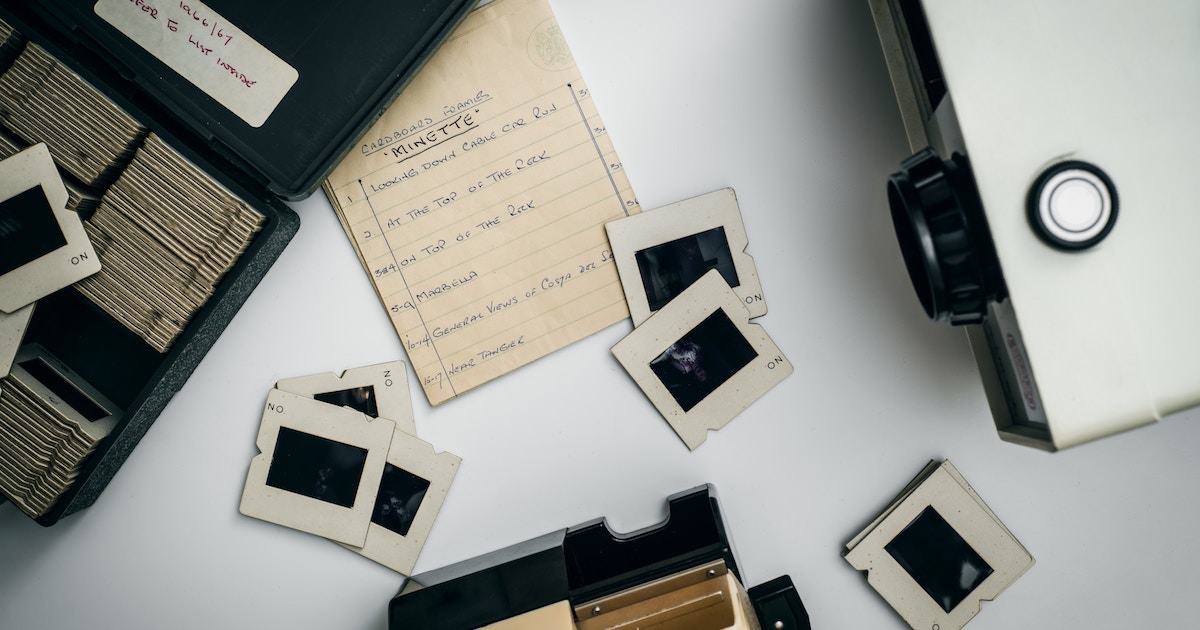 1966/67
REFER TO LIST INSIDE
CARDBOARD FRAMES
"MINETTE"
1 LOOKING DOWN CABLE CAR RUN
2 AT THE TOP OF THE ROCK
3&4 ON TOP OF THE ROCK
5-9 MARBELLA
10-14 GENERAL VIEWS OF COSTA DEL
15-17 NEAR TANGIER
NO
NO
NO
NO.
NO